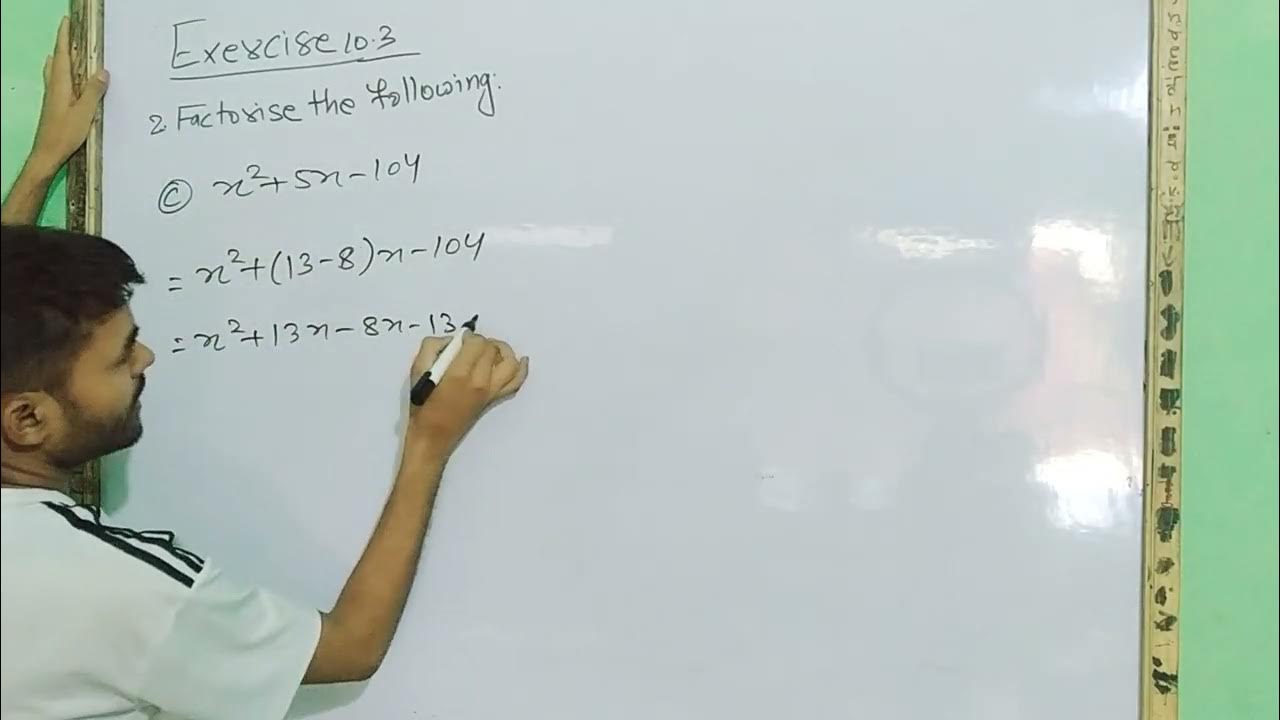 Exercise 10.3
2. Factorise the following:
ⓒ x²+5x-104
= x²+(13-8)x-104
= x²+13x-8x-13